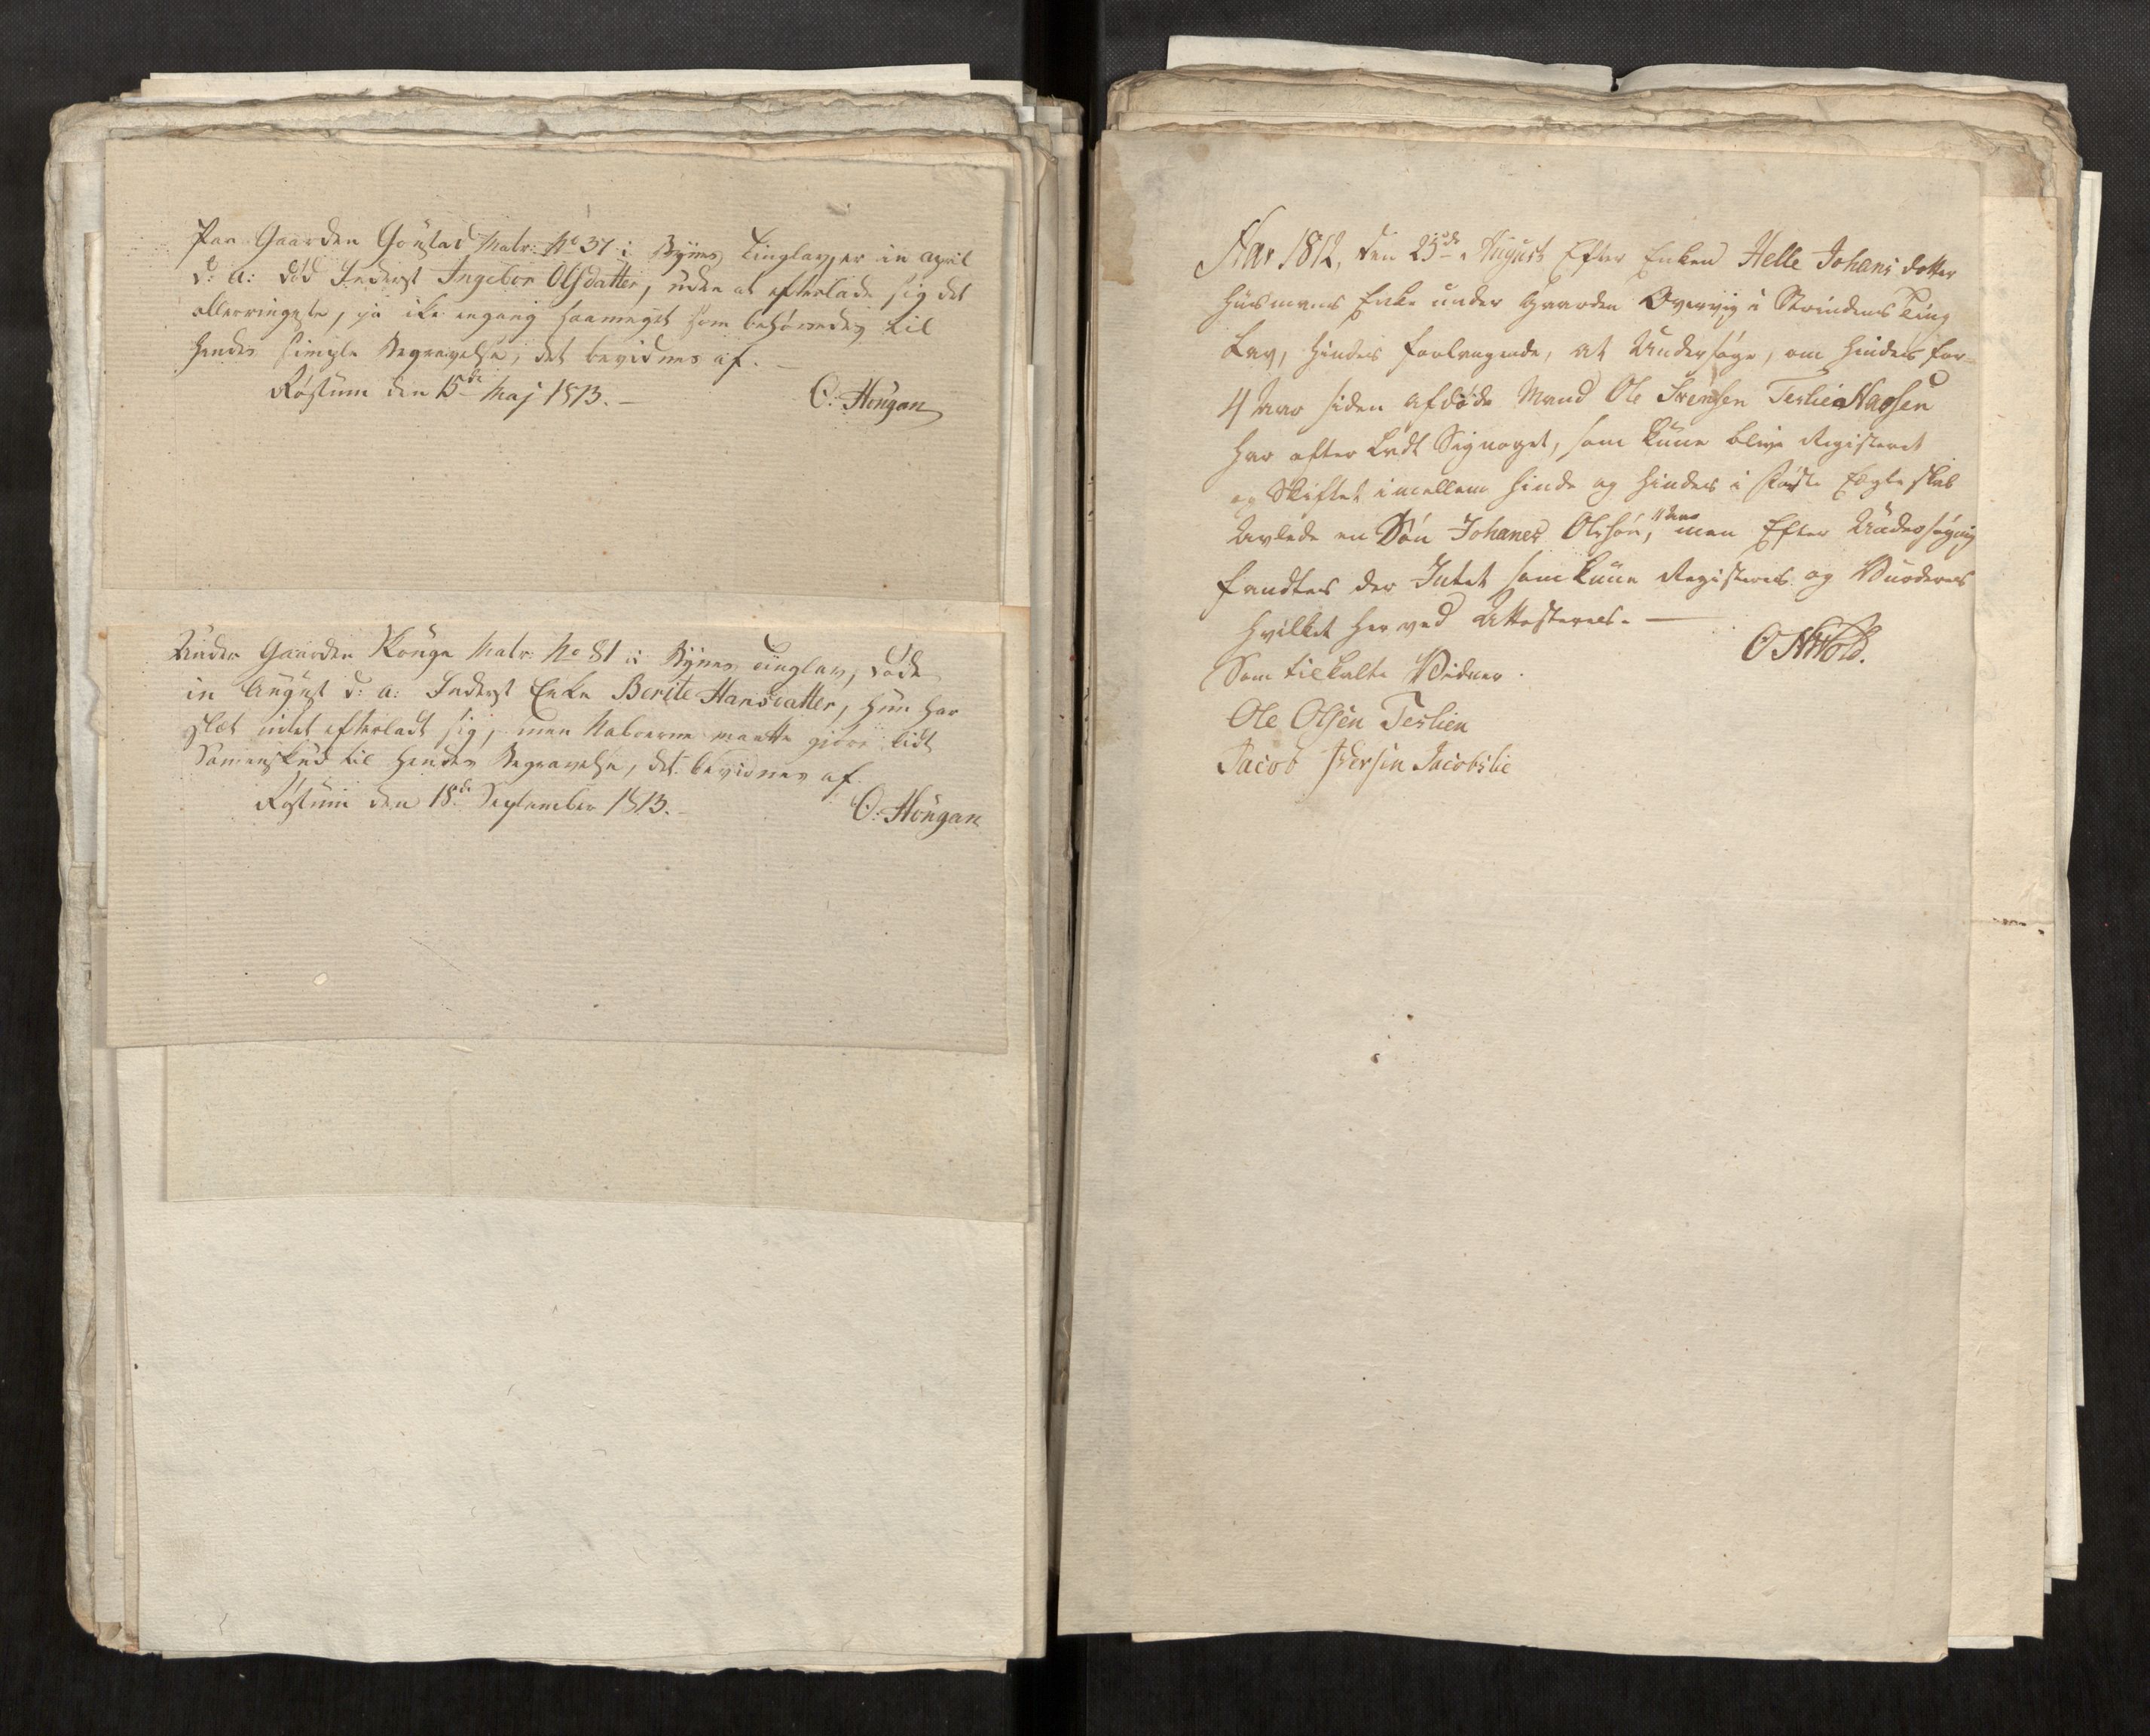 Paa Gaarden Goustad Matr: No 37 i Bynes Tinglav, er in April
d: a: død Inderst Ingebor Olsdatter, uden at efterlade sig det
allerringeste, ja ike engang saameget som behøvedes til
hendes simple Begravelse, det bevidnes af. —
Røstum den 15de Maj 1813. —
O: Høugan
Under Gaarden Rønge Matr: No 81 i Bynes Tinglav, døde
in August d: a: Inderst Enke Berite Hansdatter, hun har
slet intet efterladt sig, men Naboerne maatte gjøre lidt
Samenskud til hendes Begravelse, det bevidnes af.
Røstum den 18de September 1813. —
O: Høugan
Aar 1812, den 25de August Efter Enken Helle Johans dotter
Huusmans Enke under Gaarden Overvig i Strindens Ting
Lav, hindes forlangende, at Undersøge, om hindes for
4 Aar siden afdøde Mand Ole Svensen Teslie
har efter Ladt Sig noget, som kune blive Registeret
og Skiftet imellem hinde og hindes i første Egteskab
Avlede en Søn Johanes Olesøn, men Efter Undersøgning
fandtes der Intet som kune Registeres og Vurderes
hvilket herved Attesteres. —
Som tilkalte Vidner.
Ole Olsen Teslien
Jacob Jversen Jacobslie